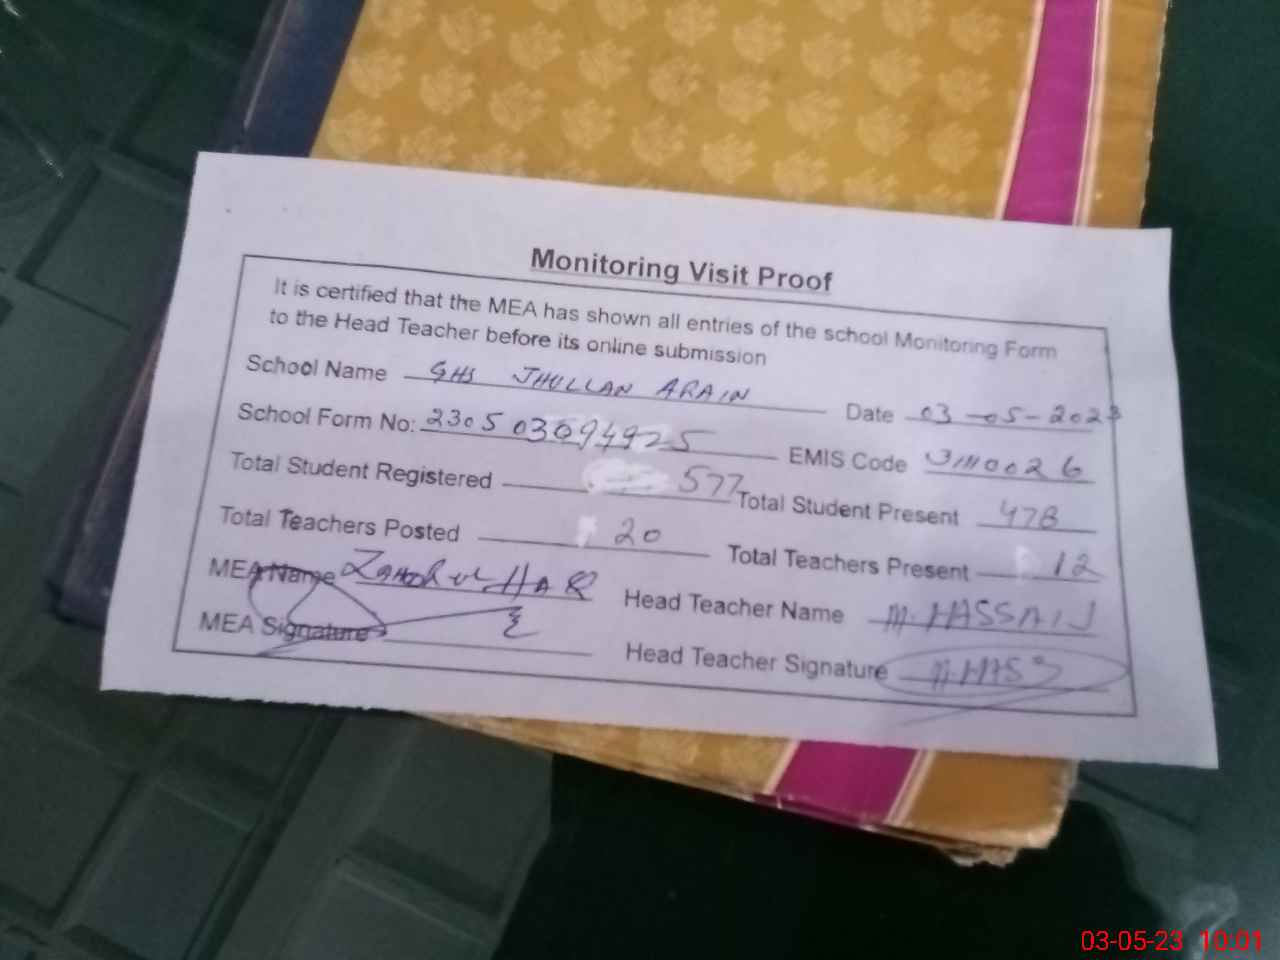 Monitoring Visit Proof
It is certified that the MEA has shown all entries of the school Monitoring Form
to the Head Teacher before its online submission
School Name GHS JHULLAN ARAIN Date 03-05-2023
School Form No: 230503094925 EMIS Code
Total Student Registered 577 Total Student Present 478
Total Teachers Posted 20 Total Teachers Present 12
MEA Name ul HAQ Head Teacher Name M. HASSAN
MEA Signature Head Teacher Signature M. HAS
03-05-23 10:01